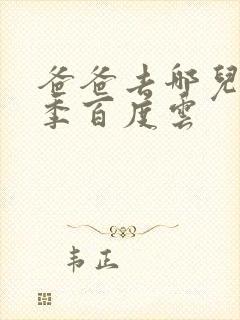 爸爸去哪兒
季百度雲
韦正